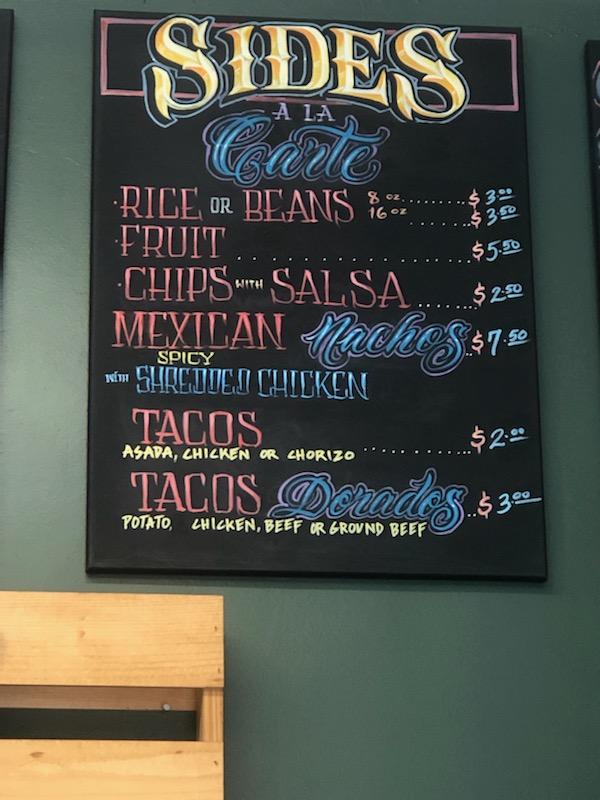 SIDES
A LA
Carte
·RICE OR BEANS 8 oz........ $3.00
16 oz ....... $3.50
·FRUIT ................ $5.50
·CHIPS WITH SALSA ...... $2.50
MEXICAN Nachos..$7.50
SPICY
WITH SHREDDED CHICKEN
TACOS
ASADA, CHICKEN OR CHORIZO ........ $2.00
TACOS Dorados..$3.00
POTATO, CHICKEN, BEEF OR GROUND BEEF